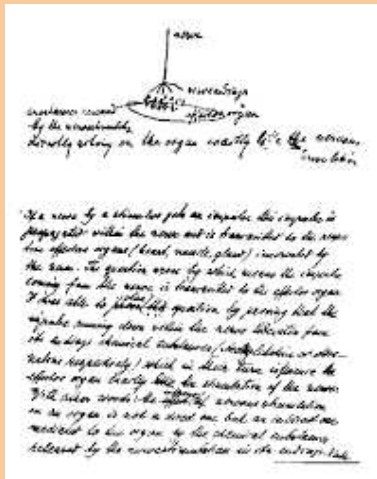 nerve
nerve endings
effector organ
substances released
by the nerve stimulation
directly acting on the organ exactly like the nervous
stimulation
If a nerve by a stimulus gets an impulse this impulse is
propagated within the nerve and is transmitted to the
effector organs (heart, muscle, gland) innervated by
the nerve. The question arose by which means the impulse
coming from the nerve is transmitted to the effector organ
I was able to this question by proving that the
impulse running down within the nerve liberates from
its endings chemical substances (Acetylcholine or
respectively) which in their turn influence the
effector organ exactly like the stimulation of the nerve.
With other words: the of nervous stimulation
on an organ is not a direct one but an indirect one
mediated to the organ by the chemical substances
released by the nerve stimulation in its endings.